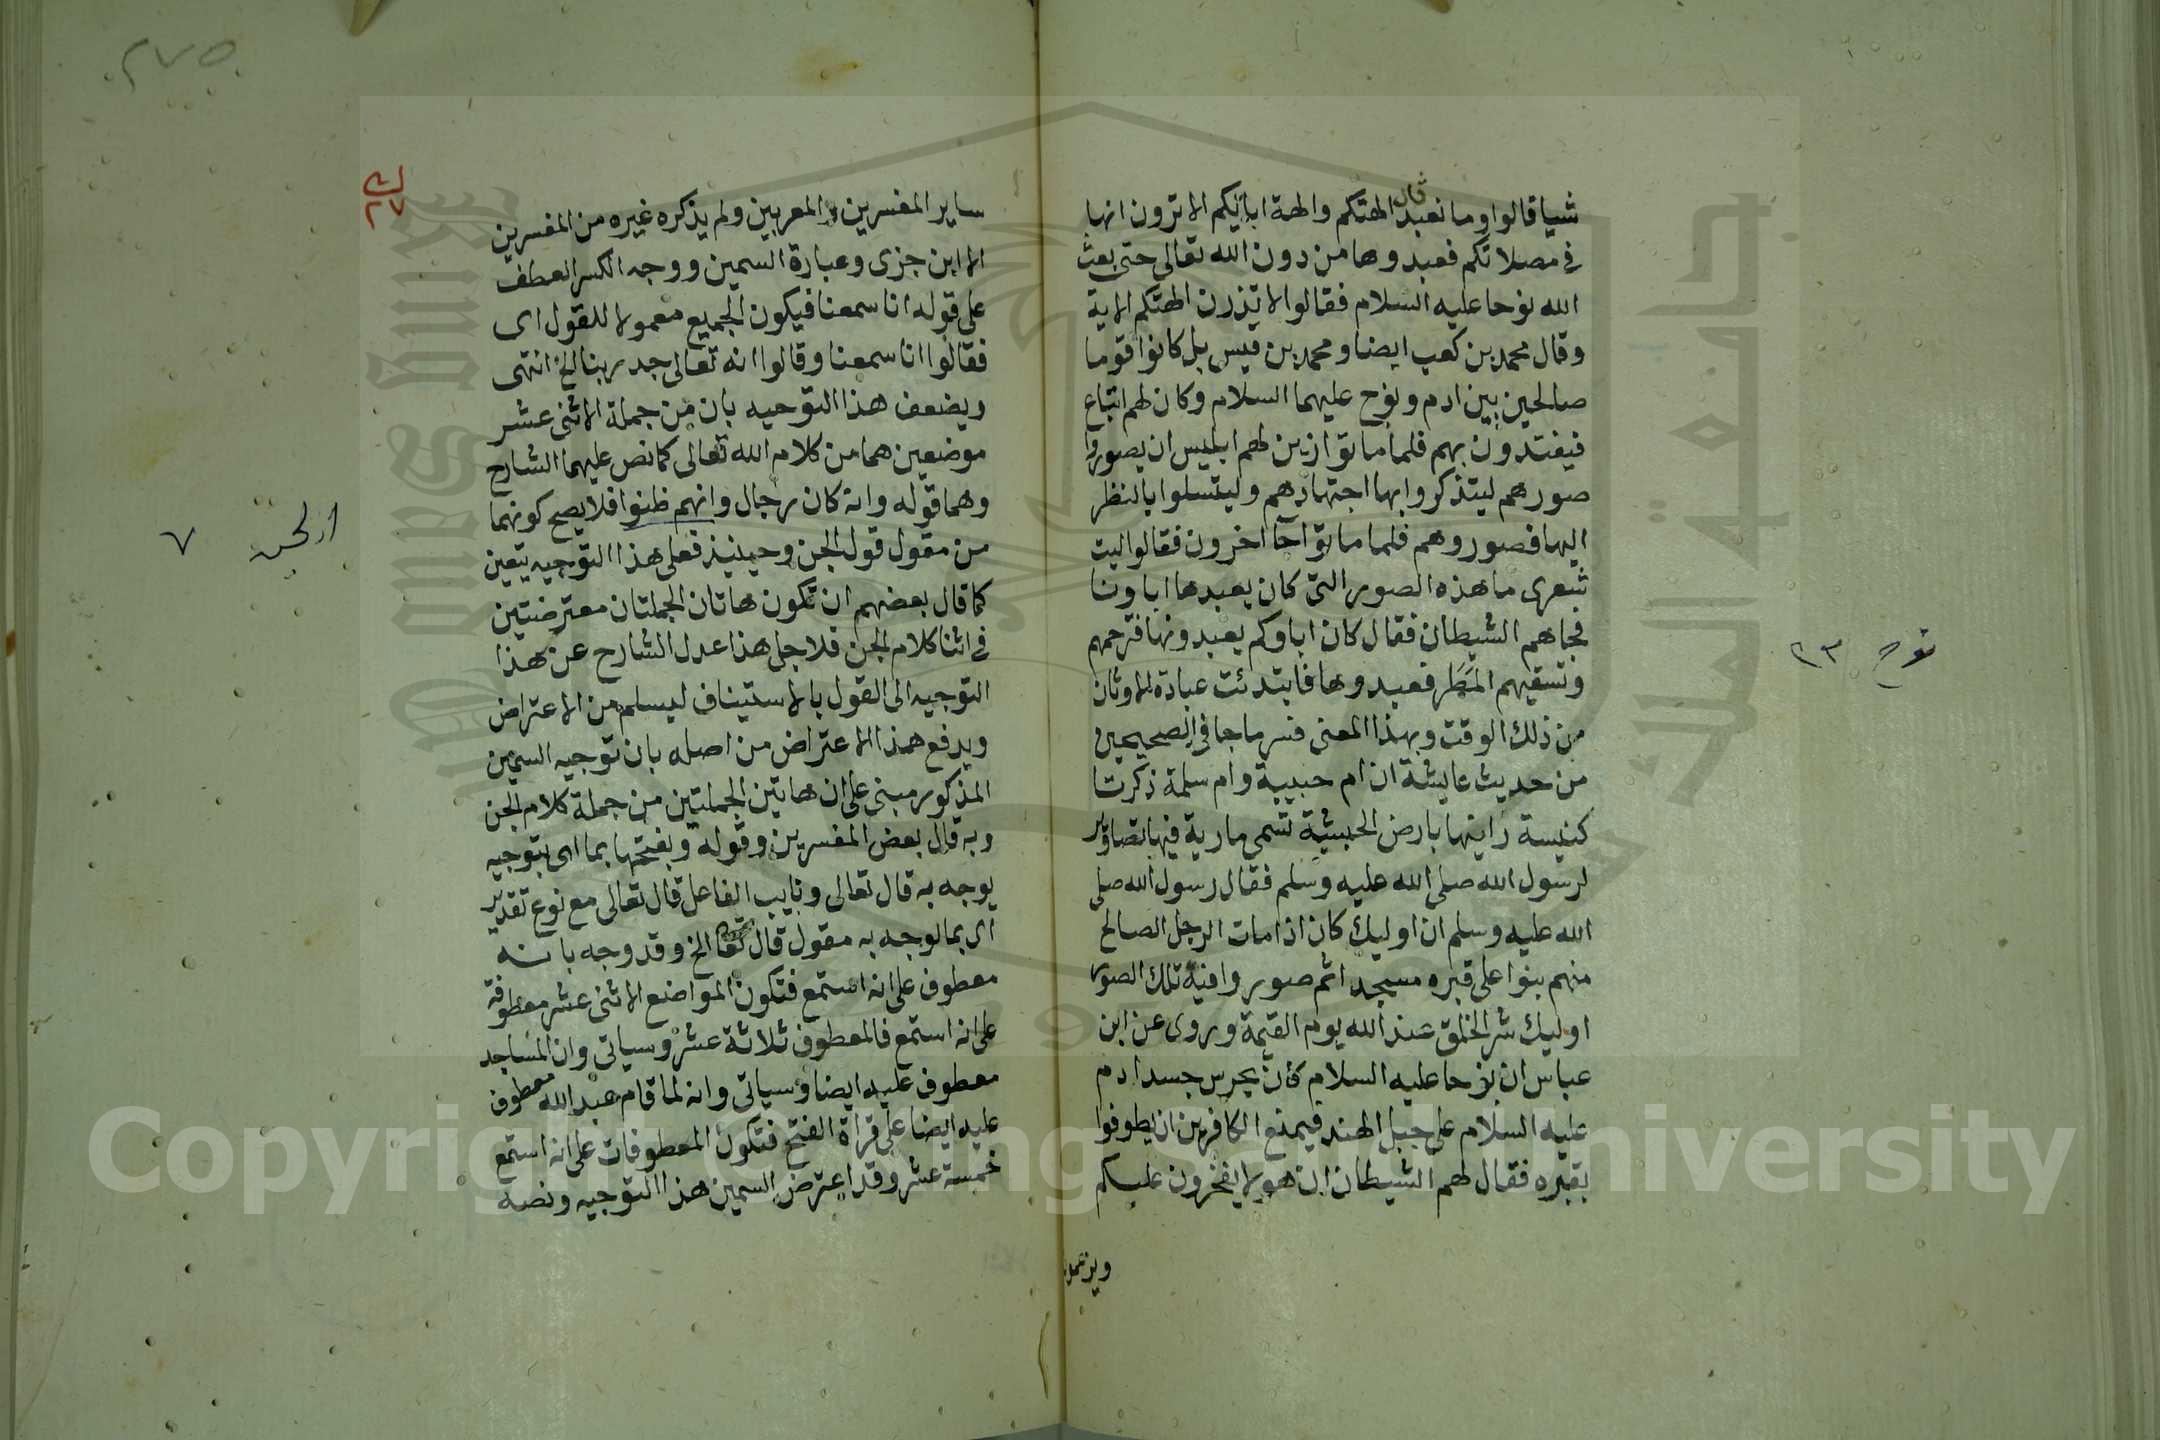 شيا قالوا وما نعبد قال الهتكم والهة ابائيكم الا ترون انها
في مصلاتكم فعبدوها من دون الله تعالى حتى بعث
الله نوحا عليه السلام فقالوا لا تذرن الهتكم الاية
وقال محمد بن كعب ايضا ومحمد بن قيس بل كانوا قوما
صالحين بين ادم ونوح عليهما السلام وكان لهم اتباع
فيقتدون بهم فلما ماتوا زين لهم ابليس ان يصوروا
صورهم ليتذكروا بها اجتهادهم وليتسلوا بالنظر
اليها فصوروهم فلما ماتوا جا اخرون فقالوا ليت
شعرى ما هذه الصور التى كان يعبدها اباونا
فجاهم الشيطان فقال كان اباوكم يعبدونها فترحمهم
وتسقيهم المطر فعبدوها فابتدئت عبادة الاوثان
من ذلك الوقت وبهذا المعنى فسر ما جا في الصحيحين
من حديث عايشة ان ام حبيبة وام سلمة ذكرتا
كنيسة راينها بارض الحبشة تسمى مارية فيها تصاوير
لرسول الله صلى الله عليه وسلم فقال رسول الله صلى
الله عليه وسلم ان اوليك كان اذا مات الرجل الصالح
منهم بنوا على قبره مسجدا ثم صوروا فيه تلك الصور
اوليك شر الخلق عند الله يوم القيمة وروى عن ابن
عباس ان نوحا عليه السلام كان يحرس جسد ادم
عليه السلام على جبل الهند فيمنع الكافرين ان يطوفوا
بقبره فقال لهم الشيطان ان هولا يفخرون عليكم
نوح ٢٣
٢٧٥
ساير المفسرين والمعربين ولم يذكره غيره من المفسرين
الا ابن جزى وعبارة السمين ووجه الكسر العطف
على قوله انا سمعنا فيكون الجميع معمولا للقول اى
فقالوا انا سمعنا وقالوا انه تعالى جد ربنا الخ انتهى
ويضعف هذا التوجيه بان من جملة الاثنى عشر
موضعين هما من كلام الله تعالى كما نص عليهما الشارح
وهما قوله وانه كان رجال وانهم ظنوا فلا يصح كونهما
من مقول قول الجن وحينيذ فعلى هذا التوجيه يتعين
كما قال بعضهم ان تكون هاتان الجملتان معترضتين
في اثنا كلام الجن فلاجل هذا عدل الشارح عن هذا
التوجيه الى القول بالاستيناف ليسلم من الاعتراض
ويدفع هذا الاعتراض من اصله بان توجيه السمين
المذكور مبنى على ان هاتين الجملتين من جملة كلام الجن
وبه قال بعض المفسرين وقوله وبفتحها بما اى بتوجيه
يوجه به قال تعالى ونايب الفاعل قال تعالى مع نوع تقدير
اى بما يوجه به مقول قال تعالى الخ وقد وجه بانه
معطوف على انه استمع فتكون المواضع الاثنى عشر معطوفة
على انه استمع فالمعطوف ثلاثة عشر وسياتي وان المساجد
معطوف عليه ايضا وسياتى وانه لما قام عبد الله معطوف
عليه ايضا على قراة الفتح فتكون المعطوفات على انه استمع
خمسة عشر وقد اعترض السمين هذا التوجيه ونصه
الجن ٧
Copyright © King Saud University
جامعة الملك سعود